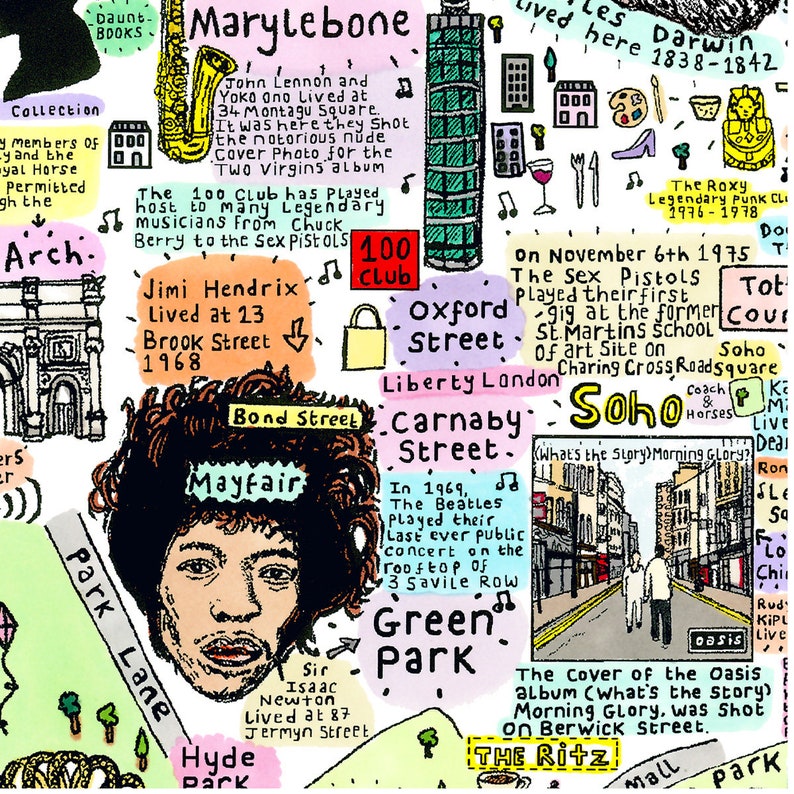 Daunt
BOOKS
Marylebone
John Lennon and
Yoko Ono Lived at
34 Montagu Square.
It was here they shot
the notorious nude
Cover Photo for the
Two Virgins album
Darwin
lived here 1838-1842
Collection
members of
and the
Royal Horse
permitted
the
The 100 Club has Played
host to many Legendary
musicians from Chuck
Berry to the Sex Pistols
100
Club
The Roxy
Legendary Punk
1976-1978
Arch
Jimi Hendrix
lived at 23
Brook Street
1968
Oxford
Street
on November 6th 1975
The Sex Pistols
Played their first
gig at the former
St. Martins School
of art Site on
Charing Cross Road
Soho
Square
Liberty London
Bond Street
Carnaby
Street
Soho
Coach
&
Horses
Mayfair
In 1969,
The Beatles
Played their
Last ever public
concert on the
rooftop of
3 Savile Row
(What's the Story) Morning Glory?
oasis
Park Lane
Green
Park
Sir
Isaac
Newton
lived at 87
Jermyn Street
The Cover of the Oasis
album (What's the Story)
Morning Glory, was Shot
on Berwick Street.
THE RITZ
Hyde
Park
Mall
Park